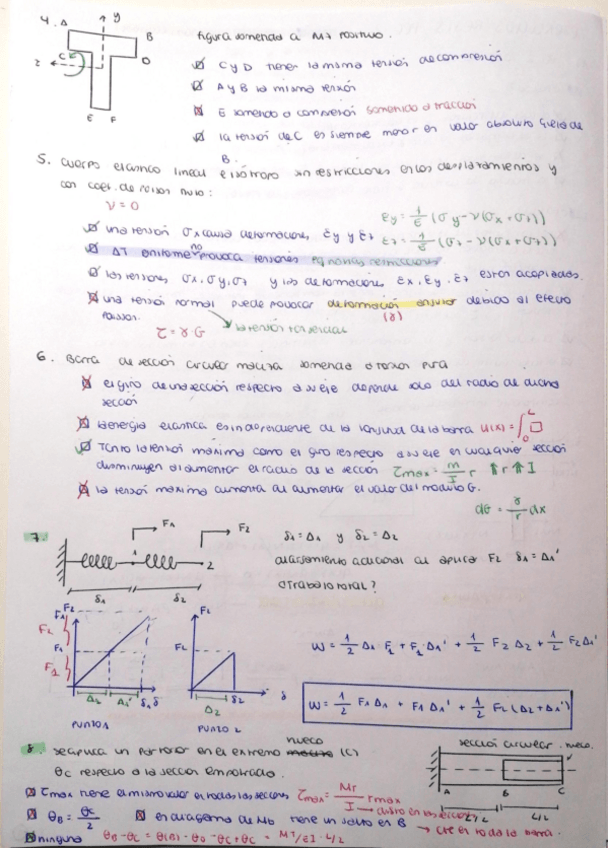 4. A
y
B
figura sometida a Mz positivo.
z
C
D
C y D tienen la misma tensión de compresión
A y B la misma tensión
E sometido a compresión sometido a tracción
E F
la tensión de C es siempre menor en valor absoluto q la de
B.
5. Cuerpo elástico lineal e isótropo sin restricciones en los desplazamientos y
con coef. de poisson nulo:
ν = 0
εy = 1/E (σy - ν(σx + σz))
una tensión σx causa deformaciones εy y εz
εz = 1/E (σz - ν(σx + σy))
ΔT uniforme no provoca tensiones pq no hay restricciones
las tensiones σx, σy, σz y las deformaciones εx, εy, εz están acopladas.
una tensión normal puede provocar deformación angular debido al efecto
poisson.
(γ)
τ = γ G
la tensión tangencial
6. Barra de sección circular maciza sometida a torsor pura
el giro de una sección respecto a su eje depende solo del radio de dicha
sección
la energía elástica es independiente de la longitud de la barra U(x) = ∫
L
0
Tanto la tensión máxima como el giro respecto a su eje en cualquier sección
disminuyen al aumentar el radio de la sección τmax = M/I r ⇑r ⇑I
la tensión máxima aumenta al aumentar el valor del modulo G.
dθ = γ/r dx
7.
F1
F2
δ1 = Δ1 y δ2 = Δ2
1
2
alargamiento adicional al aplicar F2 δ1 = Δ1'
δ1
δ2
d trabajo total?
F1
F2
F2
F1
F1
F2
F2
Δ1
Δ1'
δ1
δ
Δ2
δ2
δ
PUNTO 1
PUNTO 2
W = 1/2 Δ1 F1 + F1 Δ1' + 1/2 F2 Δ2 + 1/2 F2 Δ1'
W = 1/2 F1 Δ1 + F1 Δ1' + 1/2 F2 (Δ2 + Δ1')
8. se aplica un par torsor en el extremo hueco (C)
sección circular hueco.
θc respecto a la sección empotrada.
A B C
τmax tiene el mismo valor en todas las secciones τmax = Mr/I rmax
distinto en las secciones
L/2 L/2
θB = θc/2
el diagrama de Mt tiene un salto en B → cte en toda la barra.
ninguna